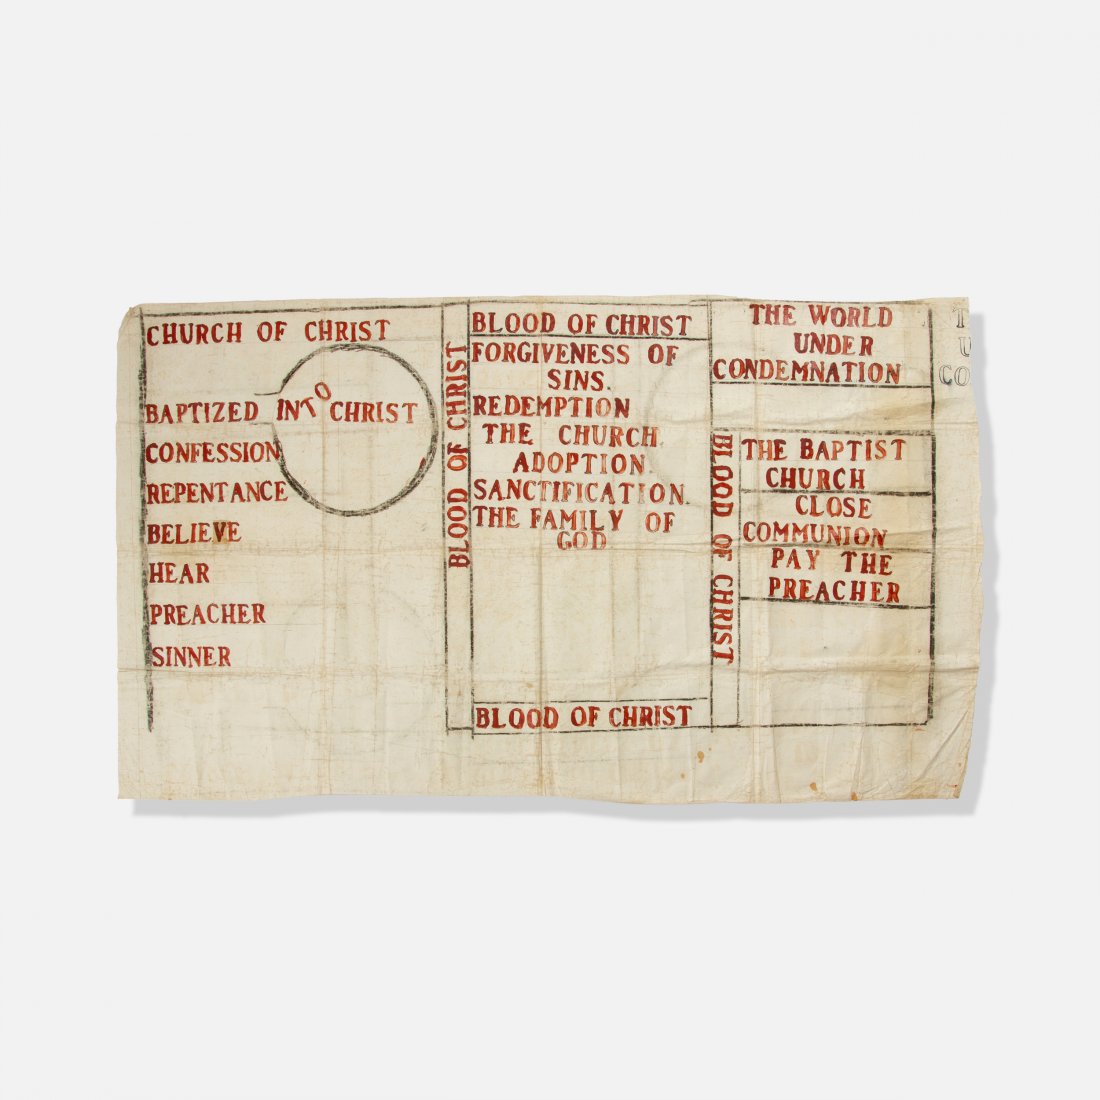 CHURCH OF CHRIST
BAPTIZED INTO CHRIST
CONFESSION
REPENTANCE
BELIEVE
HEAR
PREACHER
SINNER
BLOOD OF CHRIST
BLOOD OF CHRIST
FORGIVENESS OF
SINS.
REDEMPTION
THE CHURCH.
ADOPTION.
SANCTIFICATION.
THE FAMILY OF
GOD.
BLOOD OF CHRIST
THE WORLD
UNDER
CONDEMNATION
BLOOD OF CHRIST
THE BAPTIST
CHURCH
CLOSE
COMMUNION
PAY THE
PREACHER
T
U
CO